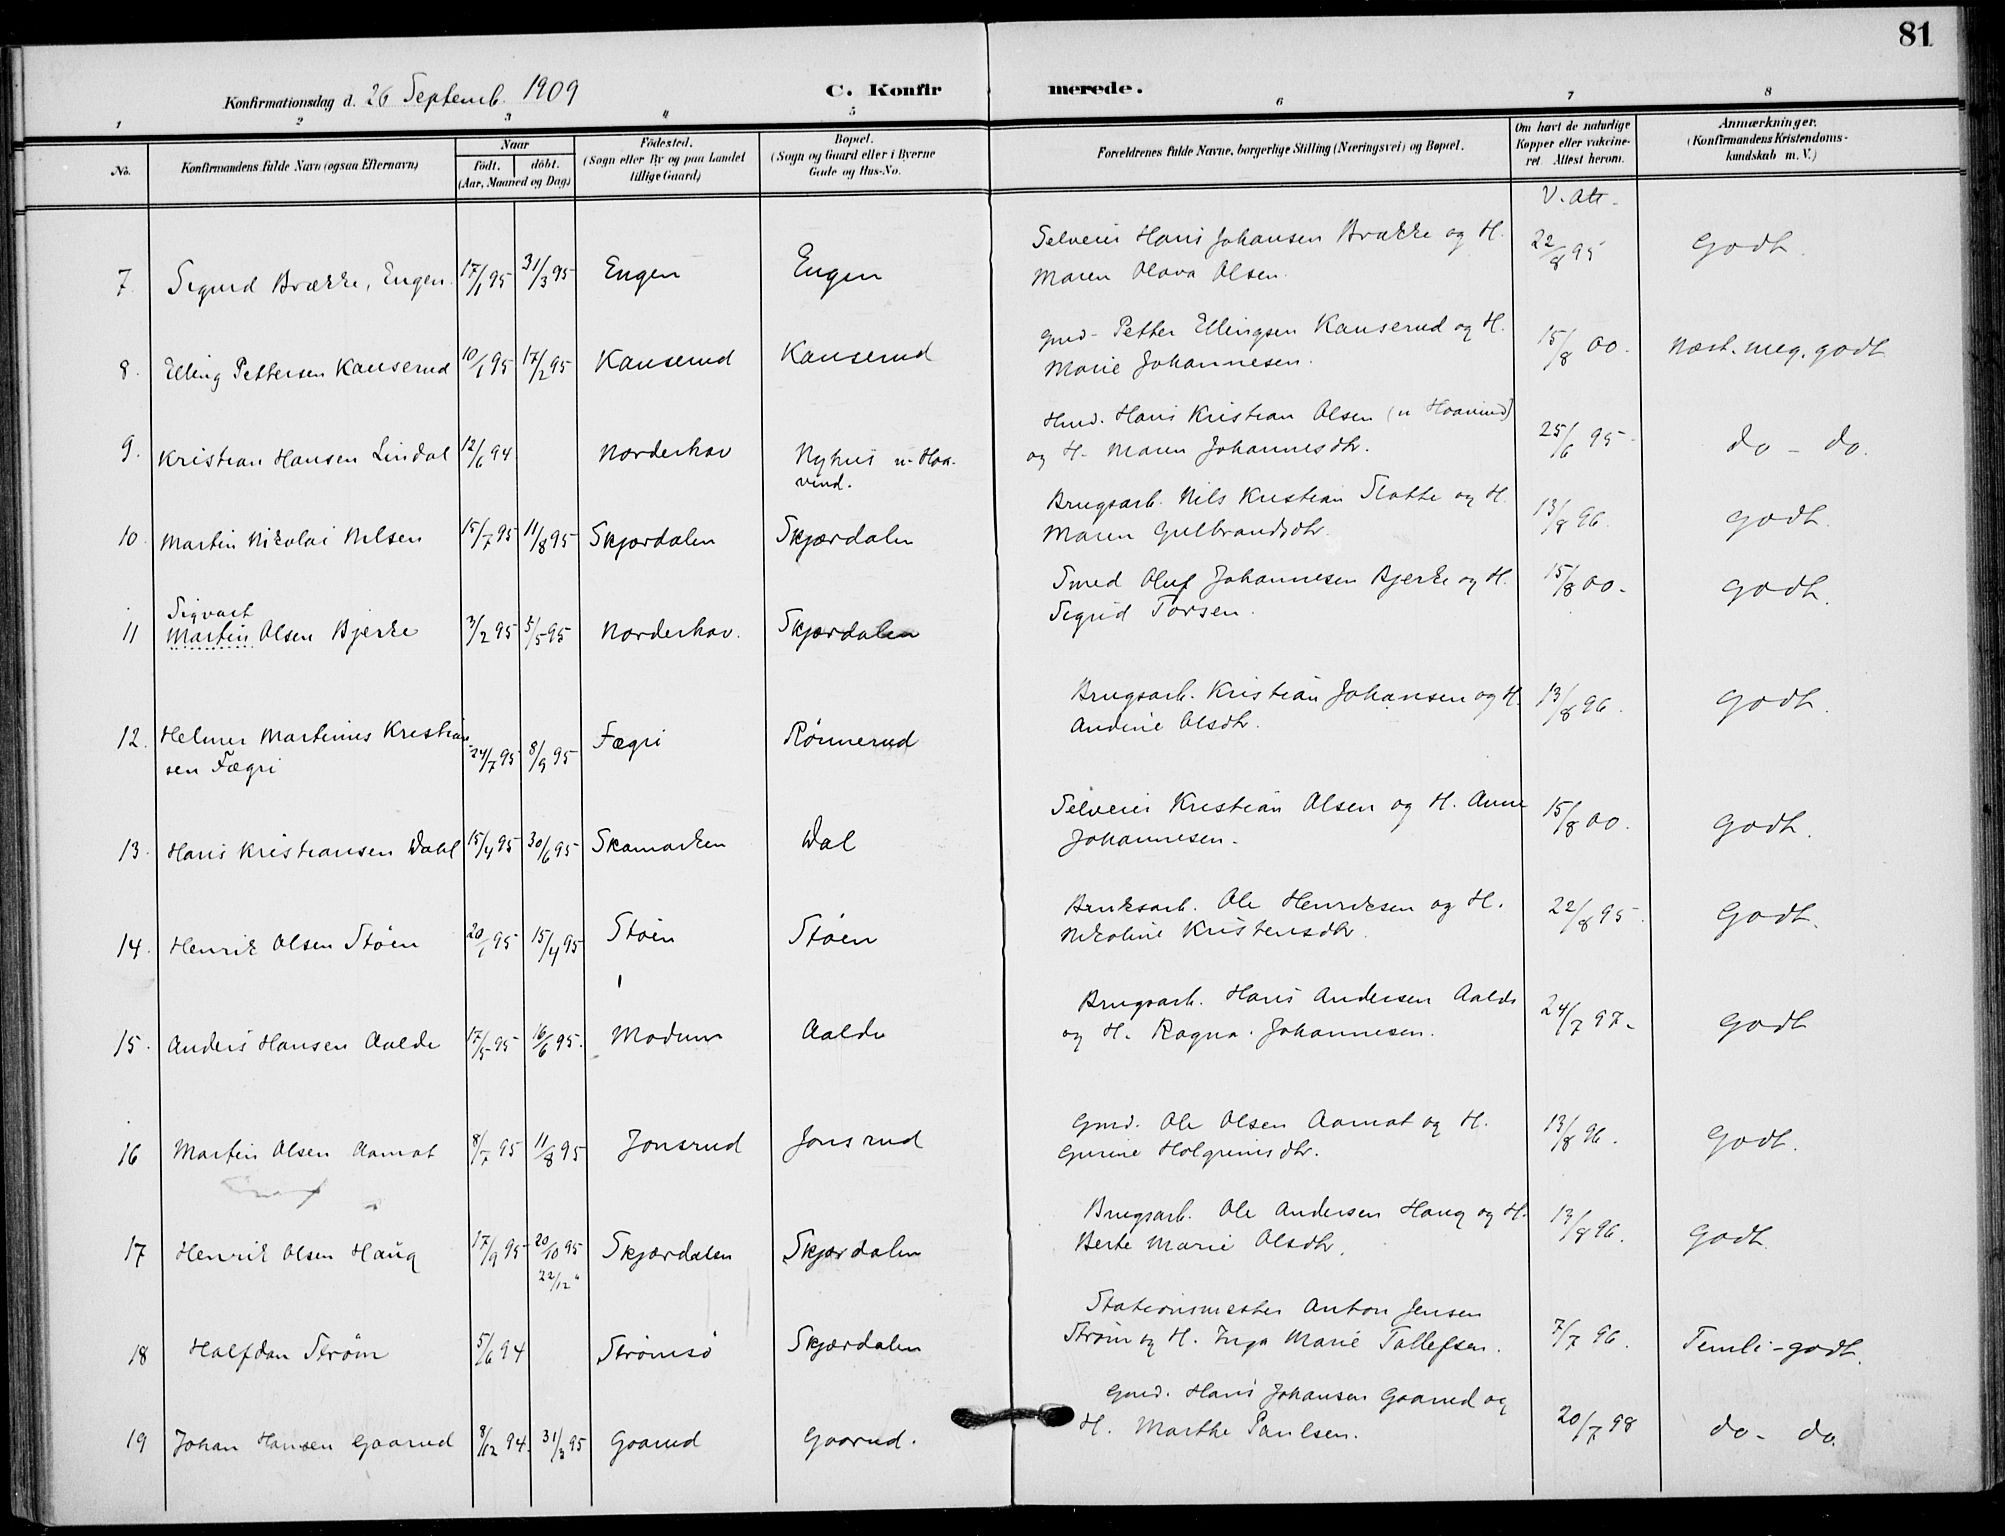 81
Konfirmationsdag d. 26 Septemb. 1909 C. Konfirmerede.
1 2 3 4 5 6 7 8
No. Konfirmandens fulde Navn (ogsaa Efternavn) Naar født. døbt. (Aar, Maaned og Dag) Fødested. (Sogn eller By og paa Landet tillige Gaard) Bopæl. (Sogn og Gaard eller i Byerne Gade og Hus-No. Forældrenes fulde Navne, borgerlige Stilling (Næringsvei) og Bopæl. Om havt de naturlige Kopper eller vakcineret. Attest herom. Anmærkninger. (Konfirmandens Kristendomskundskab m. V.)
V. Att.
7. Sigurd Brække, Engen. 17/1 95 31/3 95 Engen Engen Selveier Hans Johansen Brække og H. 22/8 95 Godt.
Maren Olava Olsen.
8. Elling Pettersen Kanserud 10/1 95 17/2 95 Kanserud Kanserud Gmd. Petter Ellingsen Kanserud og H. 15/8 00. Næst. meg. godt
Marie Johannesen.
9. Kristian Hansen Lindal 12/6 94 Norderhov Nyhus u. Hoa-
vind. Hmd. Hans Kristian Olsen (u Hoavind) 25/6 95. do - do.
og H. Maren Johannesdtr.
10. Martin Nikolai Nilsen 15/7 95 11/8 95 Skjørdalen Skjærdalen Brugsarb. Nils Kristian Slotte og H. 13/8 96. Godt.
Maren Gulbrandsdtr.
11 Sigvart
Martin Olsen Bjerke 3/2 95 5/5 95 Norderhov. Skjærdalen Smed Oluf Johannesen Bjerke og H. 15/8 00. Godt.
Sigrid Torsen.
12. Helmer Martinius Kristian-
sen Fægri 24/7 95 8/9 95 Fægri Rønnerud Brugsarb. Kristian Johansen og H. 13/8 96. Godt.
Andine Olsdtr.
13. Hans Kristiansen Dahl 15/4 95 30/6 95 Skamarken Dal Selveier Kristian Olsen og H. Anne 15/8 00. Godt.
Johannesen.
14. Henrik Olsen Støen 20/1 95 15/4 95 Støen Støen Bruksarb. Ole Henriksen og H. 22/8 95. Godt.
Nikoline Kristensdtr.
15. Anders Hansen Aalde 17/5 95 16/6 95. Modum Aalde Brugsarb. Hans Andersen Aalde 24/7 97. Godt
og H. Ragna Johannesen.
16 Martin Olsen Aamot 8/7 95 11/8 95 Jonsrud Jonsrud Gmd. Ole Olsen Aamot og H. 13/8 96. Godt.
Gurine Holgrimsdtr.
17 Henrik Olsen Haug 17/9 95 20/10 95 22/12 " Skjærdalen Skjærdalen Brugsarb. Ole Andersen Haug og H. 13/8 96. Godt.
Berte Marie Olsdtr.
18 Halfdan Strøm 5/6 94 Strømsø Skjærdalen Stationsmester Anton Jensen
Strøm og H. Inga Marie Tollefsen. 7/7 96. Temli-godt.
19 Johan Hansen Gaarud 8/12 94. 31/3 95 Gaarud Gaarud. Gmd. Hans Johansen Gaarud og
H. Marthe Paulsen. 20/7 98 do - do.